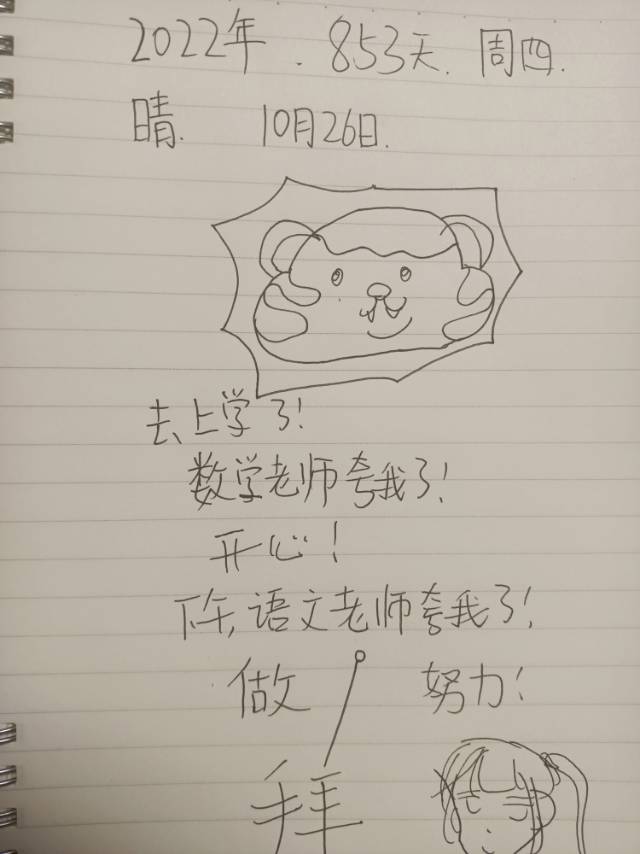 2022年.853天.周四.
晴.10月26日.
去上学了!
数学老师夸我了!
开心!
下午,语文老师夸我了!
做 努力!
拜